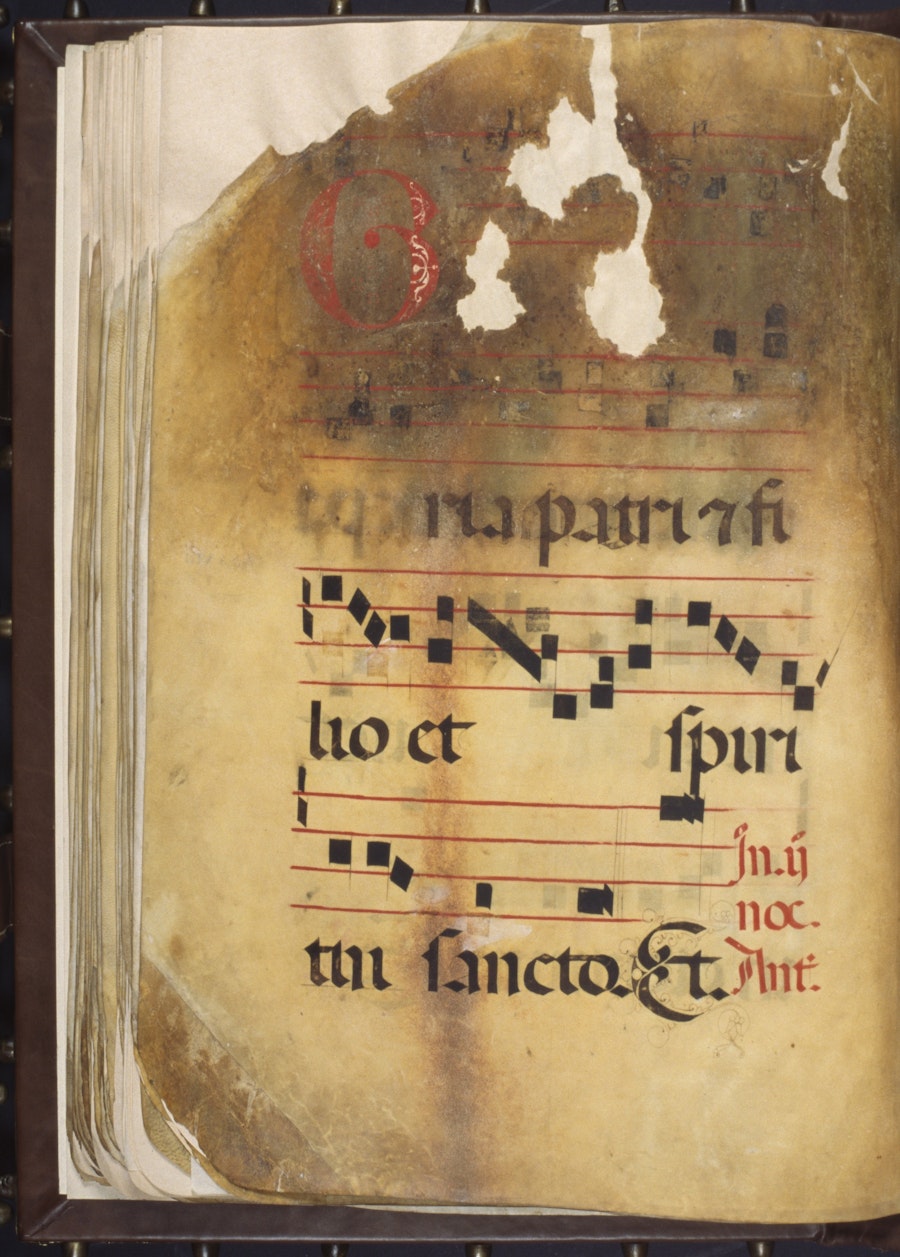 G
ria patri ⁊ fi
lio et spiri
tui sancto. Et.
In .ij
noc.
Ant.